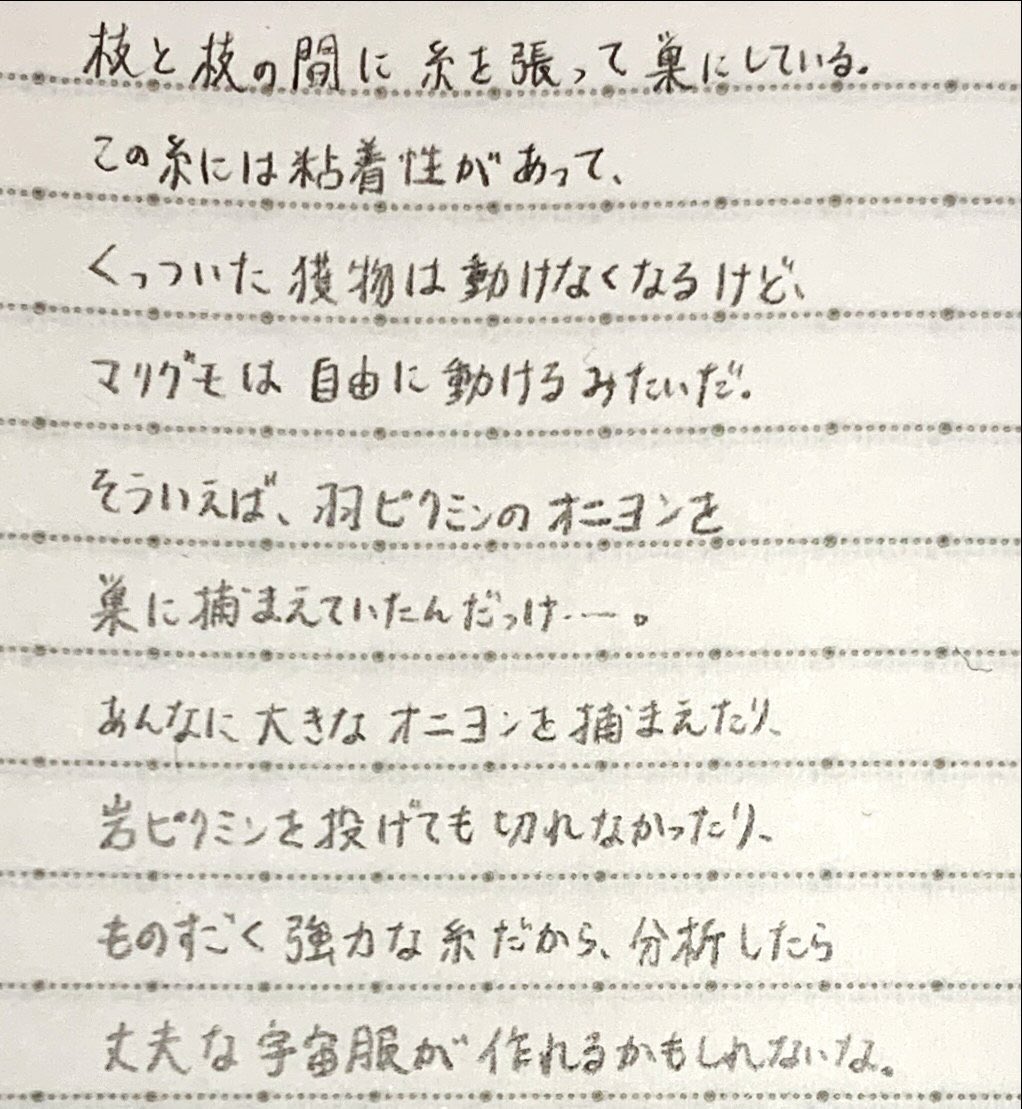 枝と枝の間に糸を張って巣にしている。
この糸には粘着性があって、
くっついた獲物は動けなくなるけど、
マリグモは自由に動けるみたいだ。
そういえば、羽ピクミンのオニヨンを
巣に捕まえていたんだっけ…。
あんなに大きなオニヨンを捕まえたり、
岩ピクミンを投げても切れなかったり、
ものすごく強力な糸だから、分析したら
丈夫な宇宙服が作れるかもしれないな。